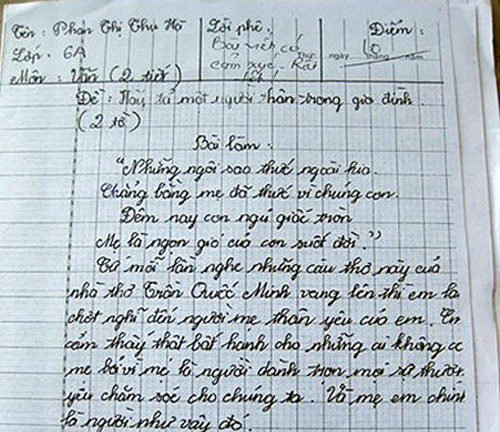 Tên: Phan Thị Thu Hà
Lời phê:
Điểm:
Lớp: 6A
Bài viết có
Thứ ngày tháng năm
10
Môn: Văn (2 tiết)
cảm xúc. Rất
tốt!
Đề: Hãy tả một người thân trong gia đình.
(2 tờ)
Bài làm:
"Những ngôi sao thức ngoài kia
Chẳng bằng mẹ đã thức vì chúng con.
Đêm nay con ngủ giấc tròn
Mẹ là ngọn gió của con suốt đời."
Cứ mỗi lần nghe những câu thơ này của
nhà thơ Trần Quốc Minh vang lên thì em lại
chợt nghĩ đến người mẹ thân yêu của em. Em
cảm thấy thật bất hạnh cho những ai không có
mẹ bởi vì mẹ là người dành trọn mọi sự thương
yêu chăm sóc cho chúng ta. Và mẹ em chính
là người như vậy đó.